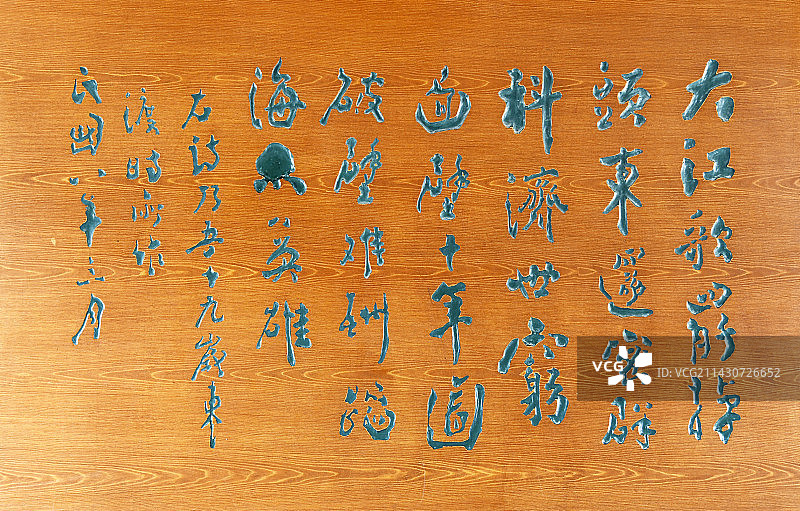 大江歌罷掉
頭東邃密群
科濟世窮
面壁十年圖
破壁難酬蹈
海亦英雄
右詩乃吾十九歲東
渡時所作
民國八年三月
VCG